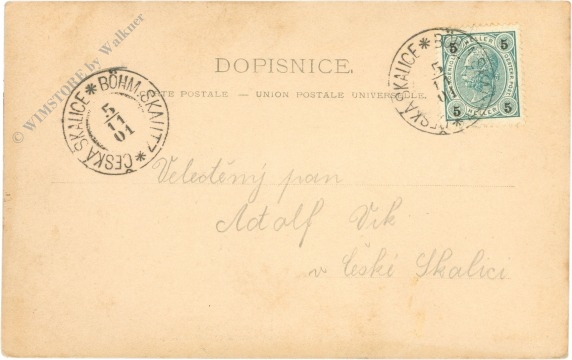 © WIMSTORE by Walkner
DOPISNICE.
CARTE POSTALE – UNION POSTALE UNIVERSELLE.
ČESKÁ SKALICE * BÖHM.-SKALITZ *
5
11
01
ČESKÁ SKALICE * BÖHM
5
11
01
5 5
5 5
HELLER
Velectěný pan
Adolf Vik
v České Skalici